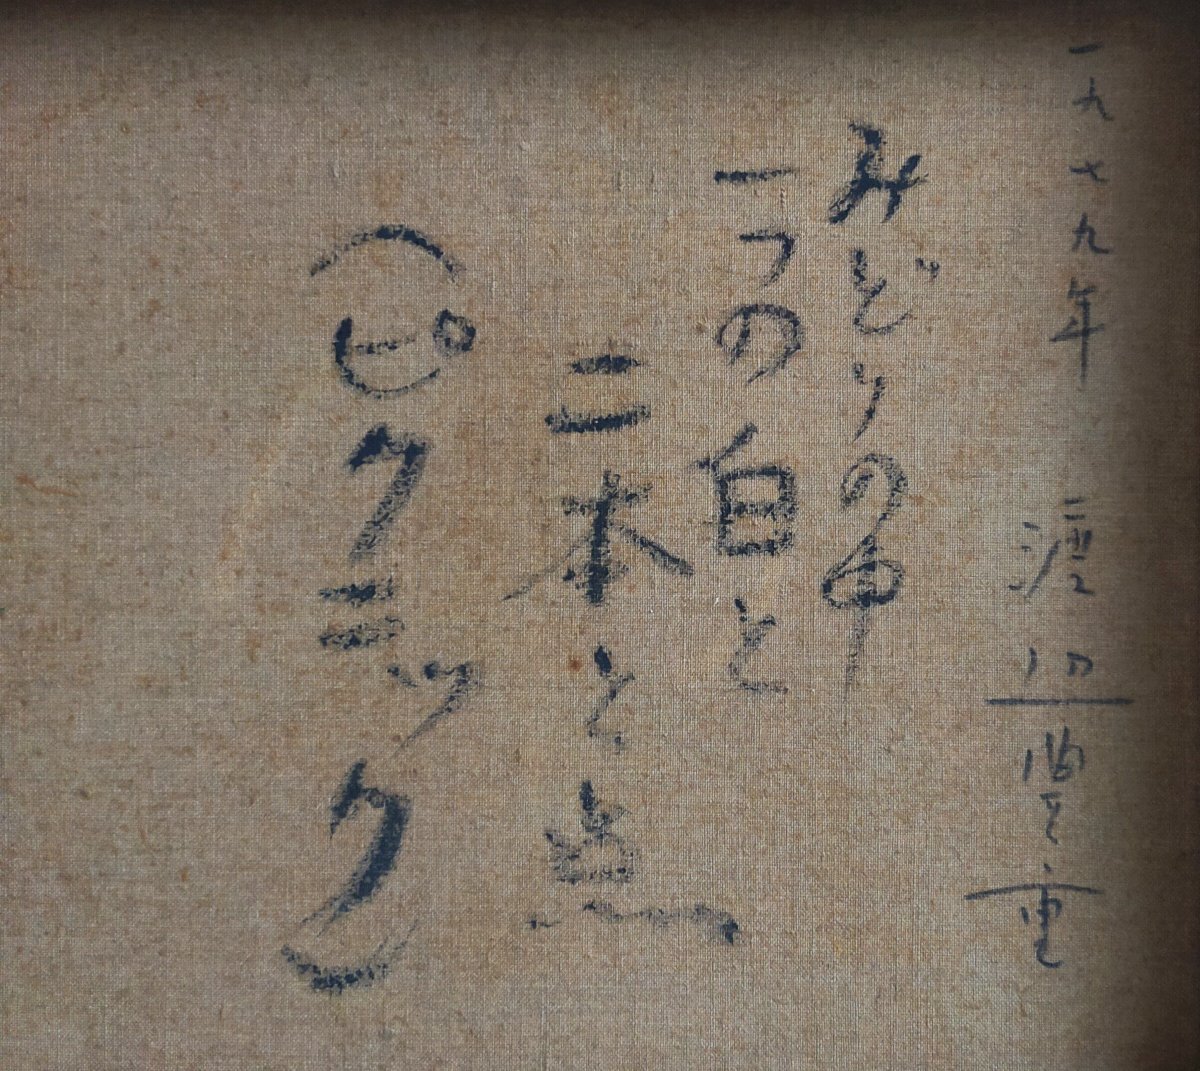 一九七九年 渡辺豊重
みどりの中
一つの白と
二本と点
(ピクニック)